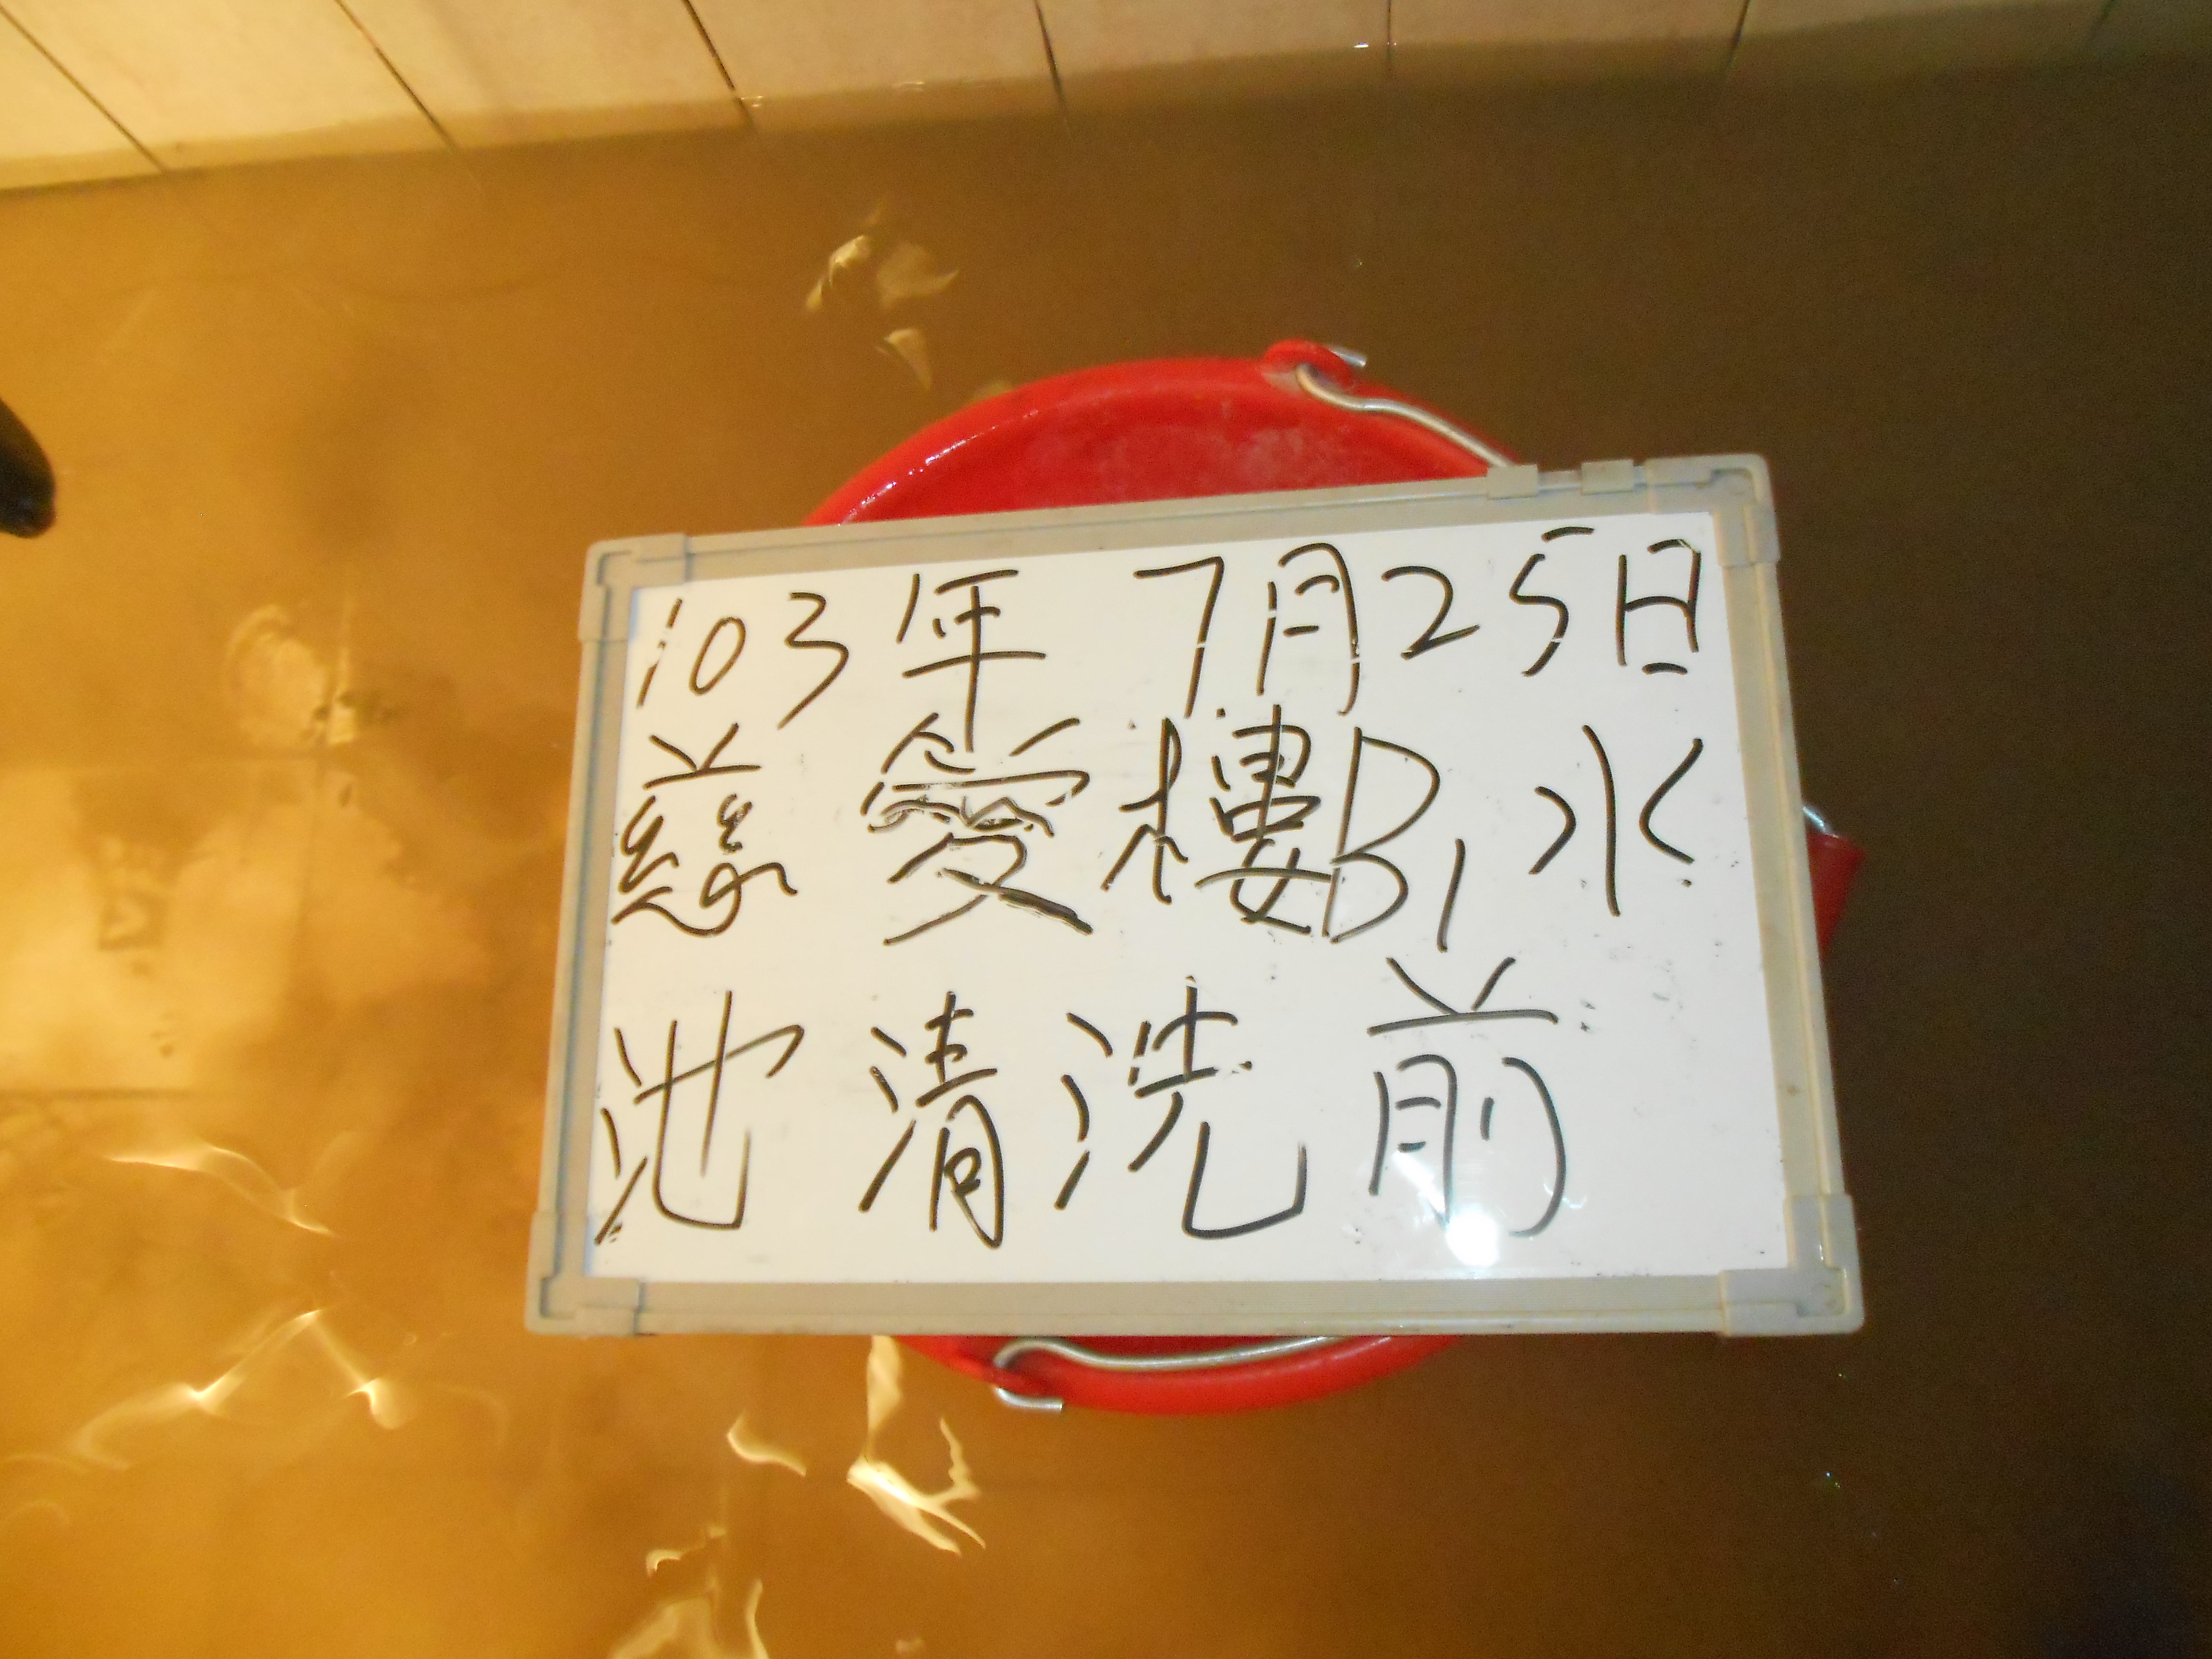 103年 7月25日
慈愛樓B1水
池清洗前